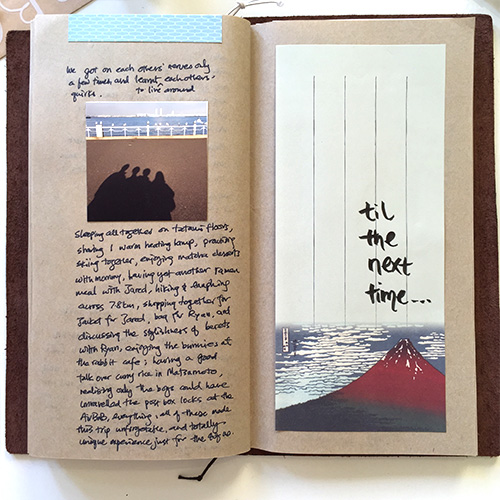 We got on each others' nerves only
a few times and learnt each others'
to live around
quirks.
Sleeping all together on tatami floors,
sharing 1 warm heating lamp, practising
skiing together, enjoying matcha desserts
with mommy, having yet another ramen
meal with Jared, hiking & laughing
across 7.8km, shopping together for
Jacket for Jared, bag for Ryan, and
discussing the stylishness of berets
with Ryan, enjoying the bunnies at
the rabbit cafe, having a good
talk over curry rice in Matsumoto,
realising only the boys could have
unravelled the post box locks at the
AirBnB, everything, all of these made
this trip unforgettable, and totally
unique experience just for the
til
the
next
time...